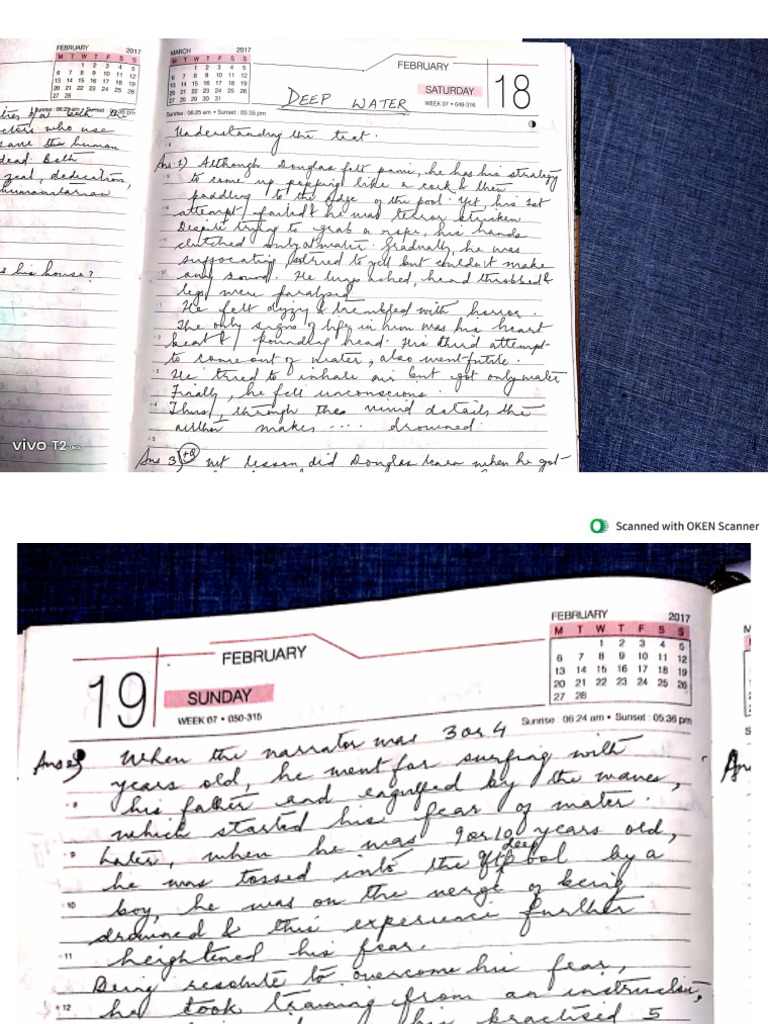 FEBRUARY 2017
M T W T F S S
1 2 3 4 5
6 7 8 9 10 11 12
13 14 15 16 17 18 19
20 21 22 23 24 25 26
27 28
Sunrise : 06:25 am • Sunset : 05:35 pm
who use
save the human
dead. Both
zeal, dedication,
humanitarian
s his house?
MARCH 2017
M T W T F S S
1 2 3 4 5
6 7 8 9 10 11 12
13 14 15 16 17 18 19
20 21 22 23 24 25 26
27 28 29 30 31
Sunrise : 06:25 am • Sunset : 05:35 pm
FEBRUARY
SATURDAY
WEEK 07 • 049-316
18
DEEP WATER
Understanding the text.
Ans 1) Although Douglas felt panic, he has his strategy
to come up popping like a cork & then
paddling to the edge of the pool. Yet, his 1st
attempt failed & he was terror stricken
Despite trying to grab a rope, his hands
clutched only at water. Gradually, he was
suffocating, tried to yell but couldnt make
any sound. He lungs ached, head throbbed &
legs were paralysed
He felt dizzy & trembled with horror.
The only signs of life in him was his heart
beat & pounding head. His third attempt
to come out of water, also went futile.
He tried to inhale air but got only water
Finally, he fell unconscious.
Thus, through the vivid details the
author makes .... drowned.
Ans 3) +Q lesson did Douglas learn when he got
vivo T2
Scanned with OKEN Scanner
19
FEBRUARY
SUNDAY
WEEK 07 • 050-315
FEBRUARY 2017
M T W T F S S
1 2 3 4 5
6 7 8 9 10 11 12
13 14 15 16 17 18 19
20 21 22 23 24 25 26
27 28
Sunrise : 06:24 am • Sunset : 05:36 pm
Ans 2) When the narrator was 3 or 4
years old, he went for surfing with
his father and engulfed by the waves,
which started his fear of water.
Later, when he was 9 or 10 years old,
he was tossed into the deep by a
boy, he was on the verge of being
drowned & this experience further
heightened his fear.
Being resolute to overcome his fear,
he took training from an instructor,
his practised 5